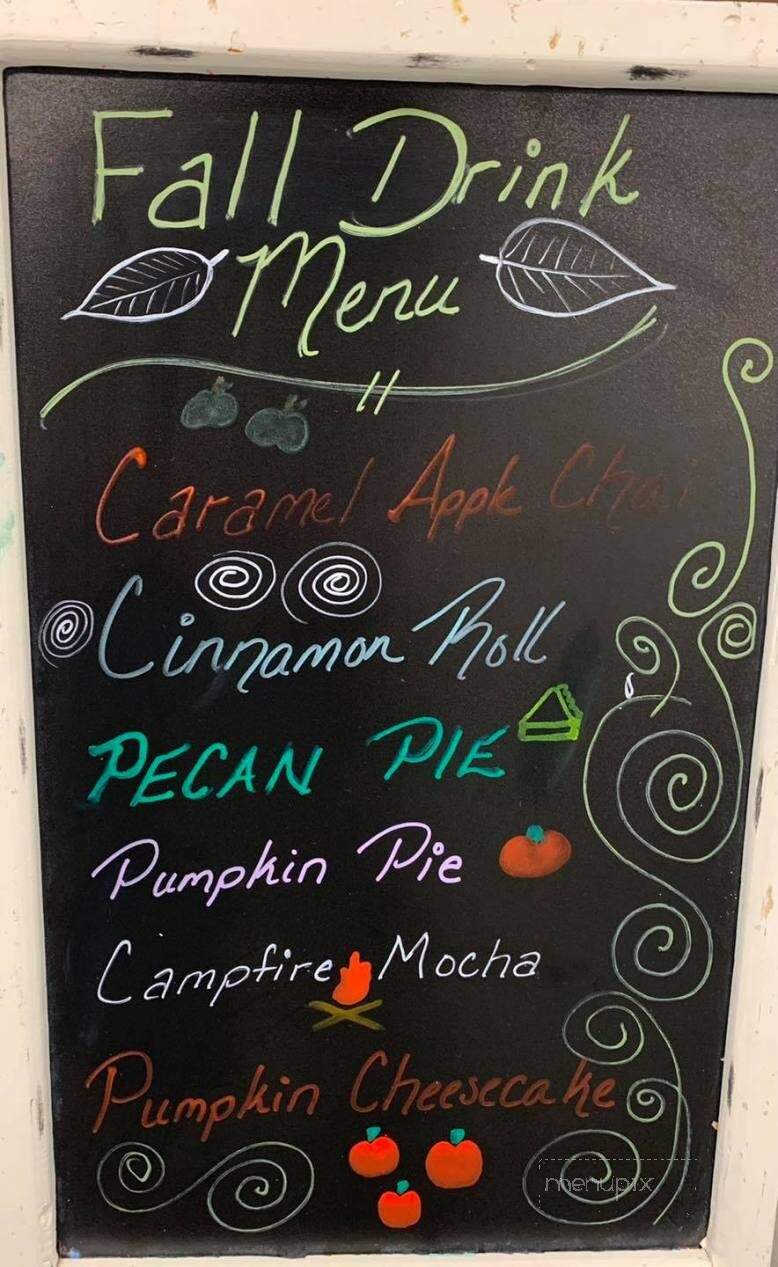 Fall Drink
Menu
Caramel Apple Chai
Cinnamon Roll
PECAN PIE
Pumpkin Pie
Campfire Mocha
Pumpkin Cheesecake
menupix